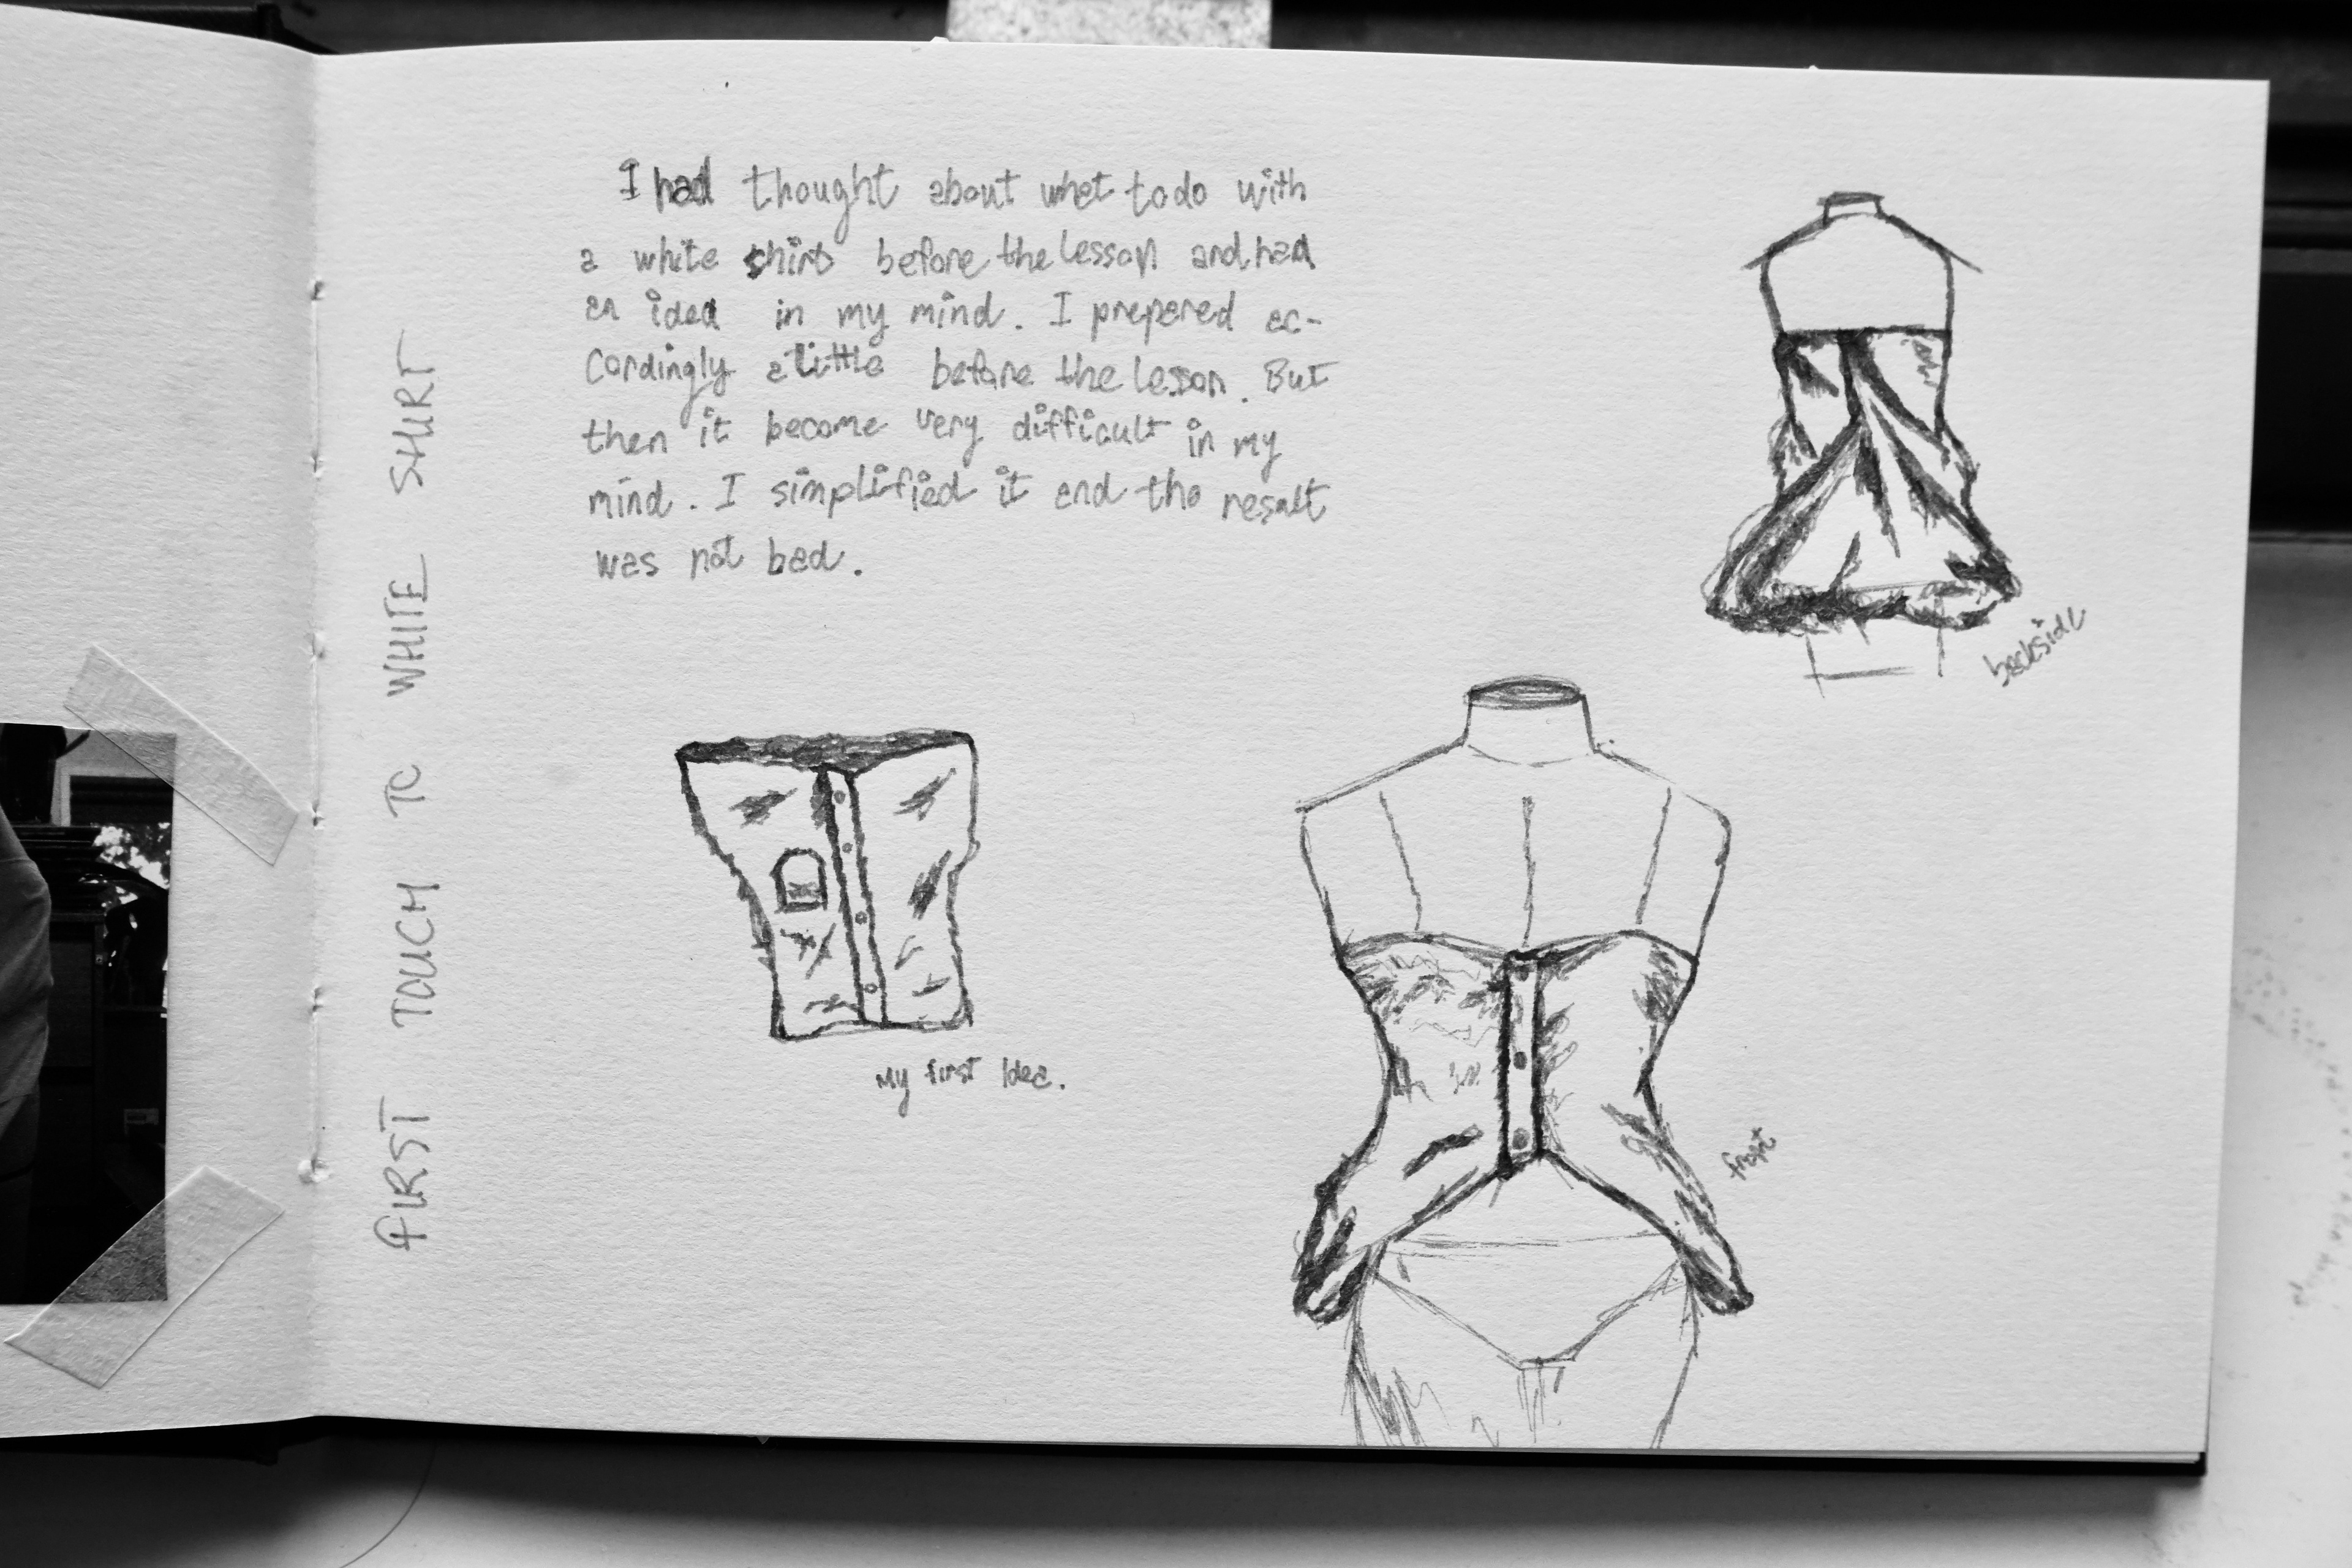 FIRST TOUCH TO WHITE SHIRT
I had thought about what to do with
a white shirt before the lesson and had
an idea in my mind. I prepared ac-
cordingly a little before the lesson. But
then it become very difficult in my
mind. I simplified it and the resalt
was not bad.
backside
My first Idea.
front